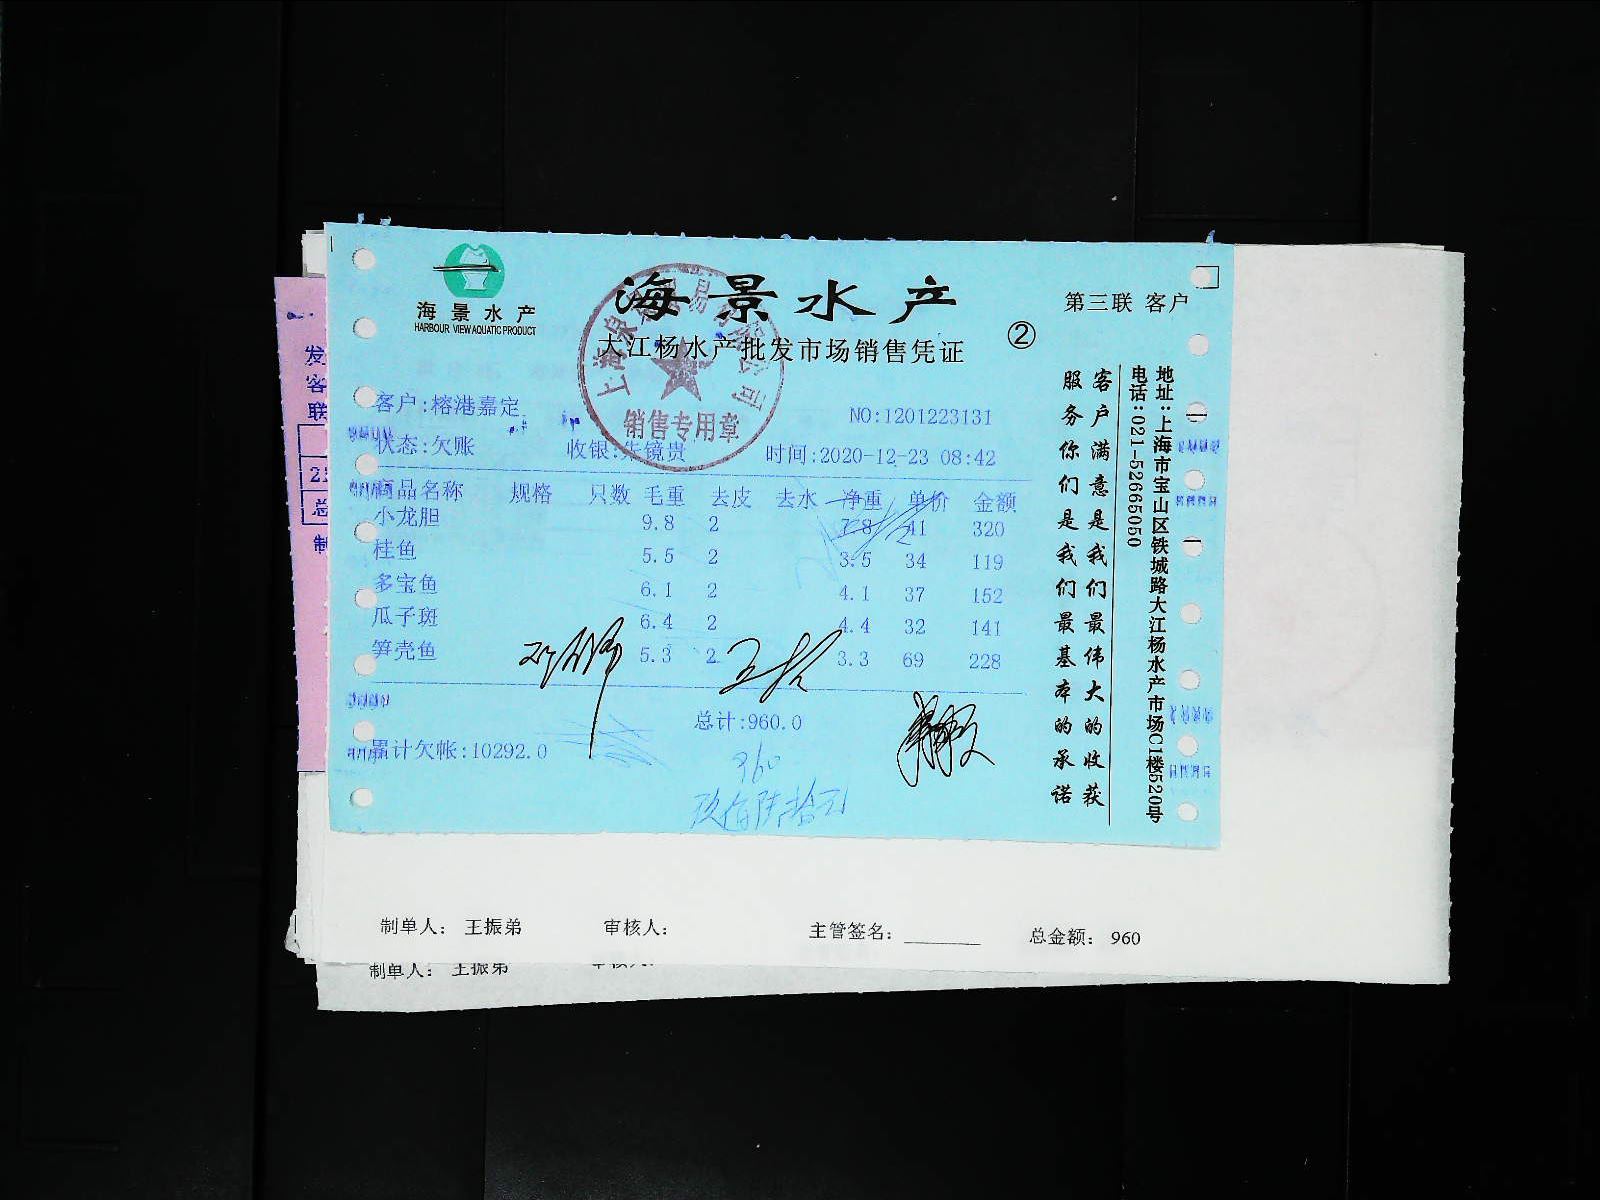 海景水产
HARBOUR VIEW AQUATIC PRODUCT
海景水产
大江杨水产批发市场销售凭证
②
第三联 客户
销售专用章
客户:榕港嘉定
NO:1201223131
状态:欠账 收银:朱镜贵 时间:2020-12-23 08:42
商品名称 规格 只数 毛重 去皮 去水 净重 单价 金额
小龙胆 9.8 2 7.8 41 320
桂鱼 5.5 2 3.5 34 119
多宝鱼 6.1 2 4.1 37 152
瓜子斑 6.4 2 4.4 32 141
笋壳鱼 5.3 2 3.3 69 228
总计:960.0
累计欠帐:10292.0
960
玖佰陆拾元
客户满意是我们最伟大的收获
服务你们是我们最基本的承诺
地址:上海市宝山区铁城路大江杨水产市场C1楼520号
电话:021-52665050
发
客
联
总
制
制单人: 王振弟 审核人: 主管签名: 总金额: 960
制单人: 王振弟 审核人: